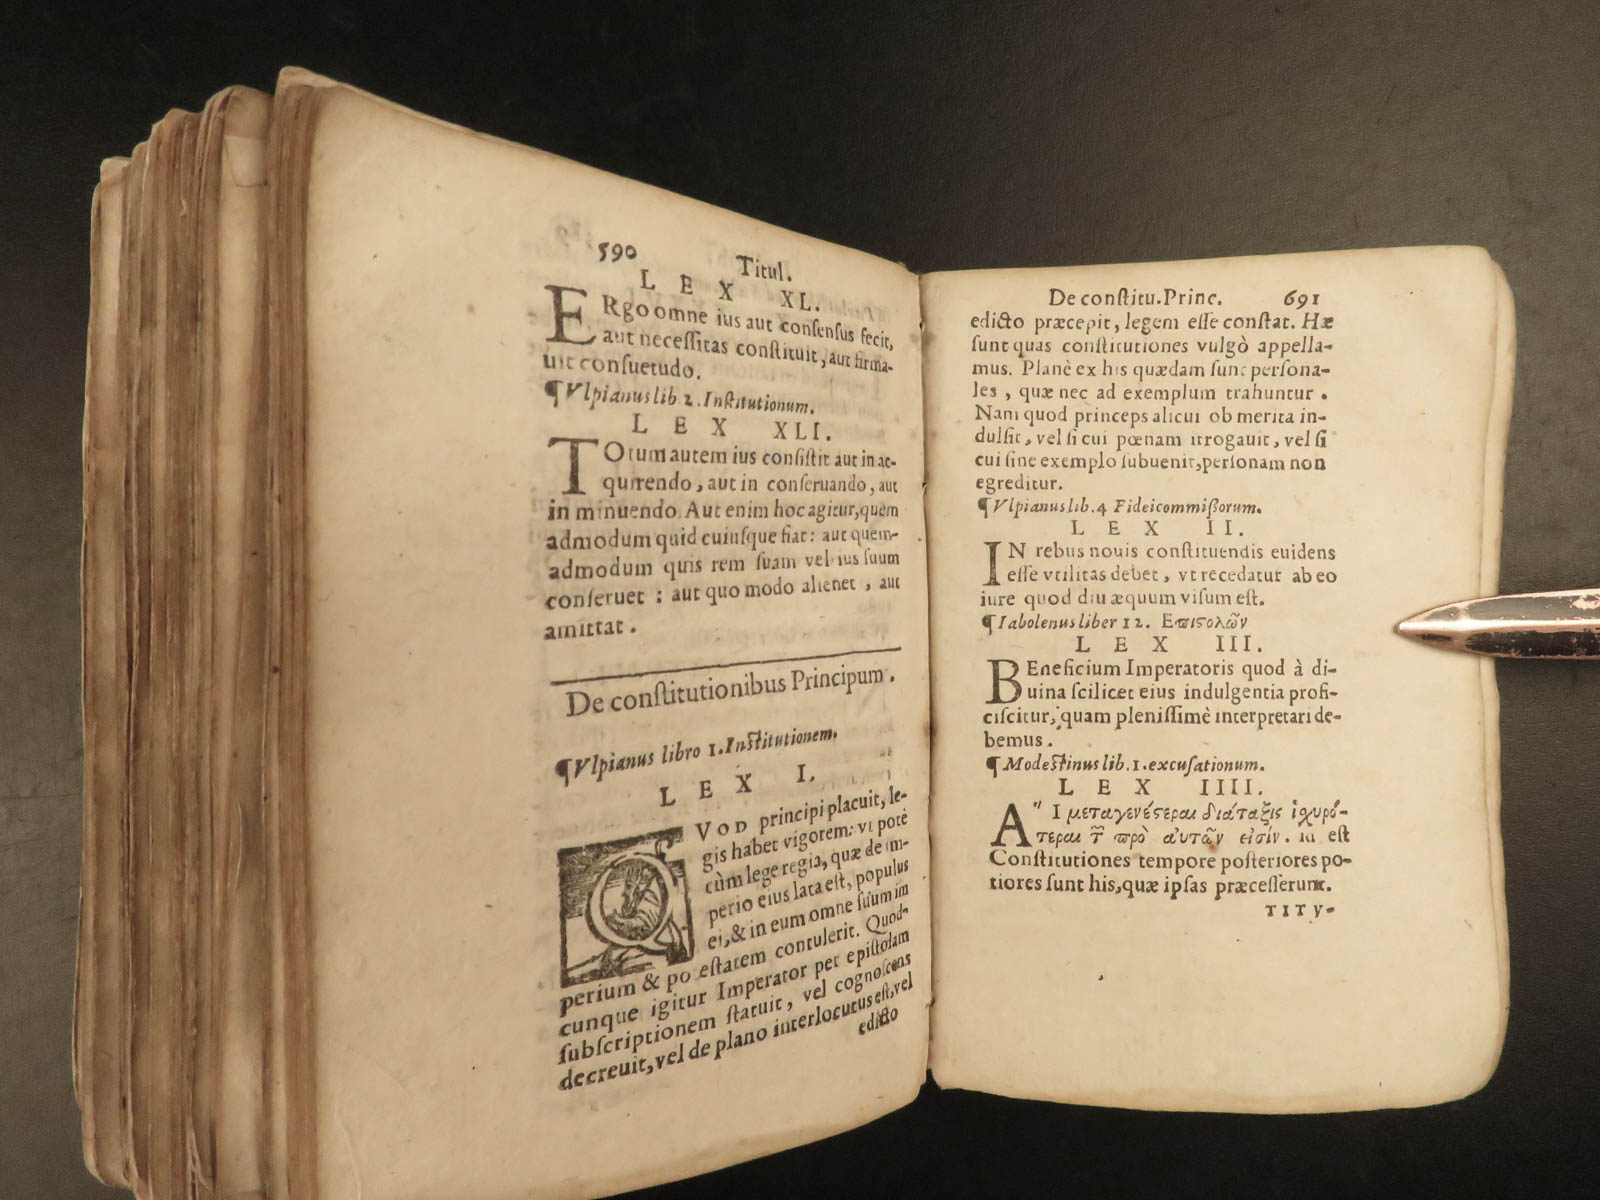 590 Titul.
L E X XL.
ERgo omne ius aut consensus fecit,
aut necessitas constituit, aut firma-
uit consuetudo.
¶Vlpianus lib 2. Institutionum.
L E X XLI.
TOtum autem ius consistit aut in ac-
quirendo, aut in conseruando, aut
in minuendo. Aut enim hoc agitur, quem
admodum quid cuiusque fiat: aut quem-
admodum quis rem suam vel ius suum
conseruet : aut quo modo alienet , aut
amittat.
De constitutionibus Principum.
¶Vlpianus libro 1. Institutionem.
L E X I.
QVOD principi placuit, le-
gis habet vigorem: vt potè
cùm lege regia, quæ de im-
perio eius lata est, populus
ei, & in eum omne suum im
perium & po estatem contulerit. Quod-
cunque igitur Imperator per epistolam
subscriptionem statuit, vel cognoscens
decreuit, vel de plano interlocutus est, vel
edicto
De constitu. Princ. 691
edicto præcepit, legem esse constat. Hæ
sunt quas constitutiones vulgò appella-
mus. Planè ex his quædam sunt persona-
les , quæ nec ad exemplum trahuntur .
Nam quod princeps alicui ob merita in-
dulsit, vel si cui pœnam irrogauit, vel si
cui sine exemplo subuenit, personam non
egreditur.
¶Vlpianus lib. 4 Fideicommissorum.
L E X II.
IN rebus nouis constituendis euidens
esse vtilitas debet , vt recedatur ab eo
iure quod diu æquum visum est.
¶Iabolenus liber 12. Επιςολῶν
L E X III.
BEneficium Imperatoris quod à di-
uina scilicet eius indulgentia profi-
ciscitur, quam plenissimè interpretari de-
bemus.
¶Modestinus lib. 1. excusationum.
L E X IIII.
A῞Ι μεταγενέςεραι διάταξις ἰχυρό-
τεραι τ̃ πρὸ αὐτῶν εἰσίν. Id est
Constitutiones tempore posteriores po-
tiores sunt his, quæ ipsas præcesserunt.
TITV-